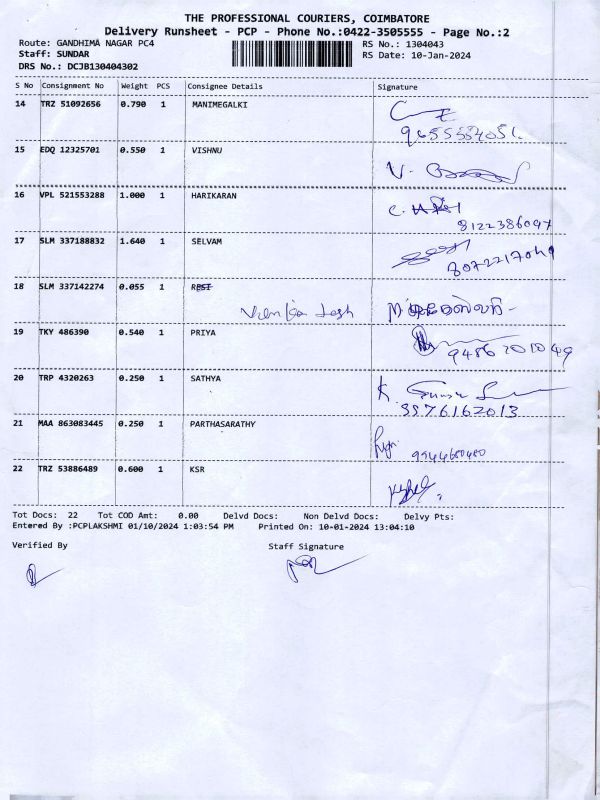 THE PROFESSIONAL COURIERS, COIMBATORE
Delivery Runsheet - PCP - Phone No.:0422-3505555 - Page No.:2
Route: GANDHIMA NAGAR PC4
RS No.: 1304043
Staff: SUNDAR
RS Date: 10-Jan-2024
DRS No.: DCJB130404302
S No Consignment No Weight PCS Consignee Details Signature
14 TRZ 51092656 0.790 1 MANIMEGALKI
15 EDQ 12325701 0.550 1 VISHNU
16 VPL 521553288 1.000 1 HARIKARAN
8122386097
17 SLM 337188832 1.640 1 SELVAM
8072217049
18 SLM 337142274 0.055 1
19 TKY 486390 0.540 1 PRIYA
9486201049
20 TRP 4320263 0.250 1 SATHYA
21 MAA 863083445 0.250 1 PARTHASARATHY
22 TRZ 53886489 0.600 1 KSR
Tot Docs: 22 Tot COD Amt: 0.00 Delvd Docs: Non Delvd Docs: Delvy Pts:
Entered By :PCPLAKSHMI 01/10/2024 1:03:54 PM Printed On: 10-01-2024 13:04:10
Verified By Staff Signature